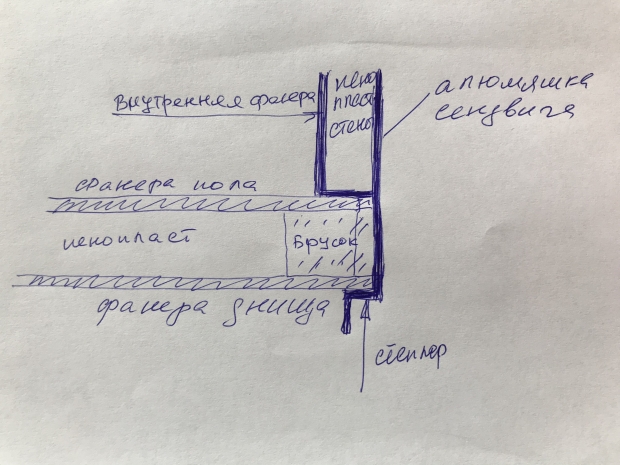 внутренняя фанера
пено
пласт
стены
алюмяшка
сендвича
фанера пола
пенопласт
Брусок
фанера днища
степлер